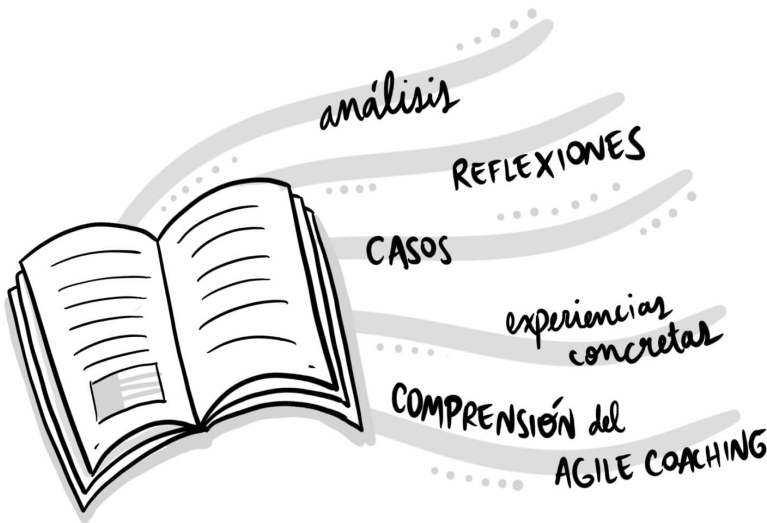 análisis
REFLEXIONES
CASOS
experiencias
concretas
COMPRENSIÓN del
AGILE COACHING